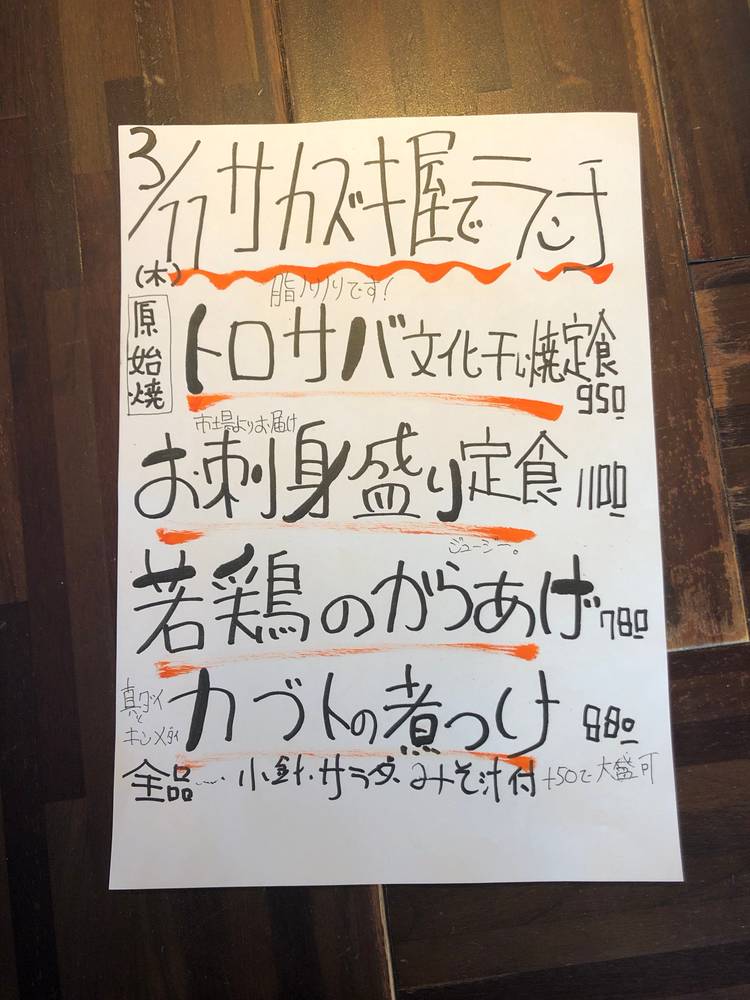 3/11 サカズキ屋でランチ
(木)
脂ノリノリです!
原始焼
トロサバ文化干し焼定食
950
市場よりお届け
お刺身盛り定食 1100
ジューシー。
若鶏のからあげ 780
真ダイと
キンメダイ
カブトの煮つけ 880
全品……小鉢・サラダ・みそ汁付 +50で大盛可